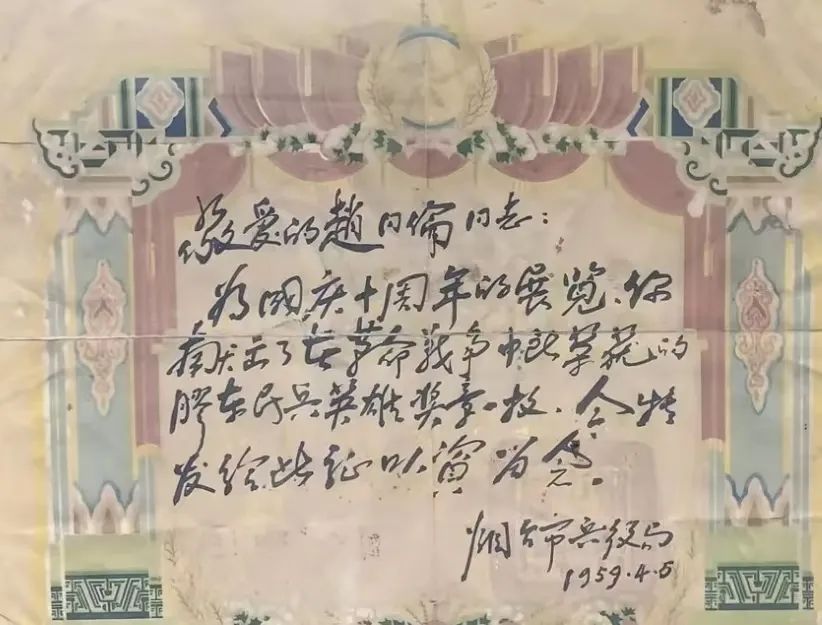 敬爱的趙同倫同志：
为國庆十周年的展览、你
献出了在革命战争中光荣的
膠东民兵英雄奖章一枚．今特
发给此证以資为念。
烟台市兵役局
1959.4.5